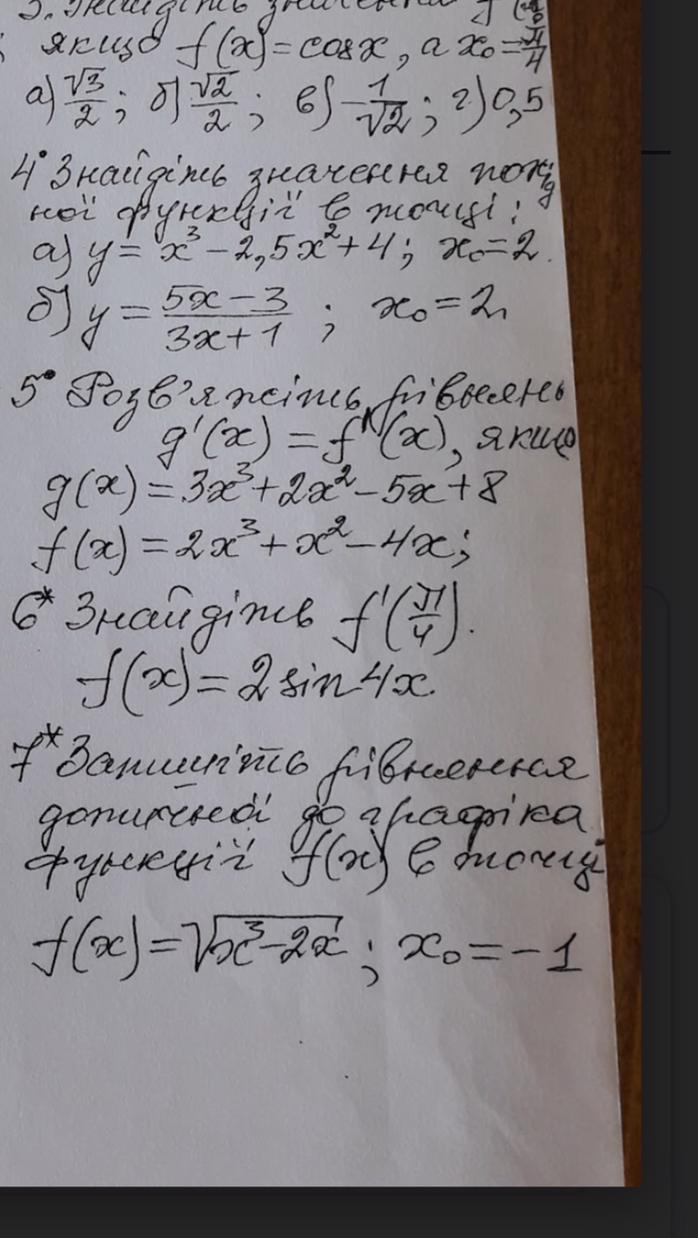 3. Знайдіть значення f'(x₀)
якщо f(x) = cosx, а x₀ = π/4
а) √3/2; б) √2/2; в) -1/√2; г) 0,5
4° Знайдіть значення похід
ної функції в точці:
а) y = x³ - 2,5x² + 4; x₀ = 2.
б) y = (5x - 3)/(3x + 1); x₀ = 2,
5° Розв'яжіть рівнянь
g'(x) = f'(x), якщо
g(x) = 3x³ + 2x² - 5x + 8
f(x) = 2x³ + x² - 4x;
6* Знайдіть f'(π/4).
f(x) = 2 sin 4x.
7* Запишіть рівняння
дотичної до графіка
функції f(x) в точці
f(x) = √(x³ - 2x); x₀ = -1